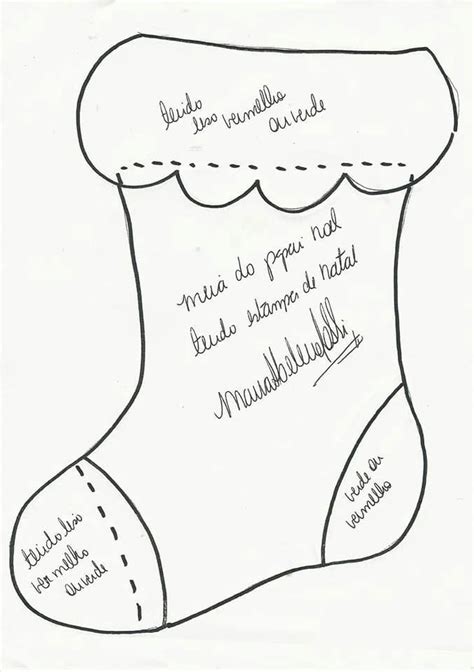 tecido
liso vermelho
ou verde
meia do papai noel
tecido estampa de natal
verde ou
vermelho
tecido liso
vermelho
ou verde